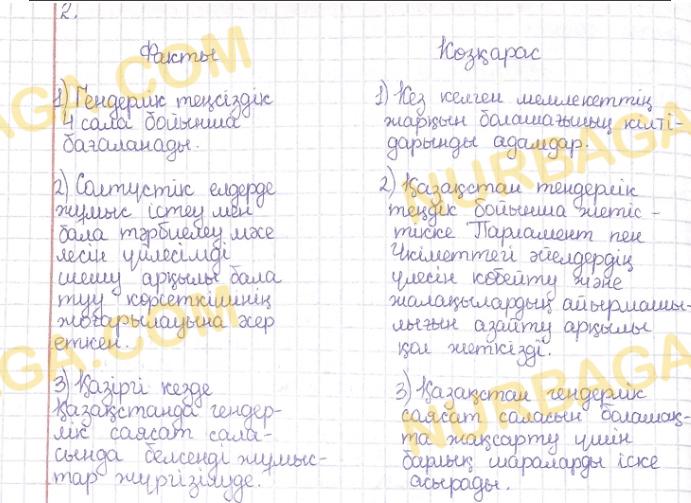 2.
Факты
1) Гендерлік теңсіздік
4 сала бойынша
бағаланады.
2) Солтүстік елдерде
жұмыс істеу мен
бала тәрбиелеу мәсе
лесін үйлесімді
шешу арқылы бала
туу көрсеткішінің
жоғарылауына әсер
еткен.
3) Қазіргі кезде
Қазақстанда гендер-
лік саясат сала-
сында белсенді жұмыс-
тар жүргізілуде.
Көзқарас
1) Кез келген мемлекеттің
жарқын болашағының кілті-
дарынды адамдар.
2) Қазақстан гендерлік
теңдік бойынша жетіс-
тікке Парламент пен
Үкіметтегі әйелдердің
үлесін көбейту және
жалақылардың айырмашы-
лығын азайту арқылы
қол жеткізді.
3) Қазақстан гендерлік
саясат саласын болашақ-
та жақсарту үшін
барлық шараларды іске
асырады.
NURBAGA.COM
NURBAGA.COM
NURBAGA
NURBAGA